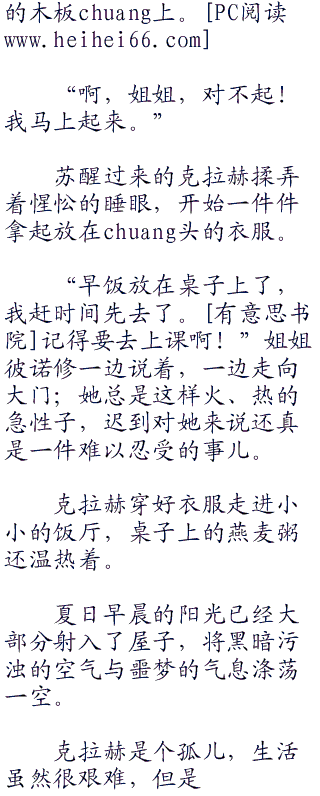 的木板chuang上。[PC阅读
www.heihei66.com]
“啊，姐姐，对不起！
我马上起来。”
苏醒过来的克拉赫揉弄
着惺忪的睡眼，开始一件件
拿起放在chuang头的衣服。
“早饭放在桌子上了，
我赶时间先去了。[有意思书
院]记得要去上课啊！”姐姐
彼诺修一边说着，一边走向
大门；她总是这样火、热的
急性子，迟到对她来说还真
是一件难以忍受的事儿。
克拉赫穿好衣服走进小
小的饭厅，桌子上的燕麦粥
还温热着。
夏日早晨的阳光已经大
部分射入了屋子，将黑暗污
浊的空气与噩梦的气息涤荡
一空。
克拉赫是个孤儿，生活
虽然很艰难，但是